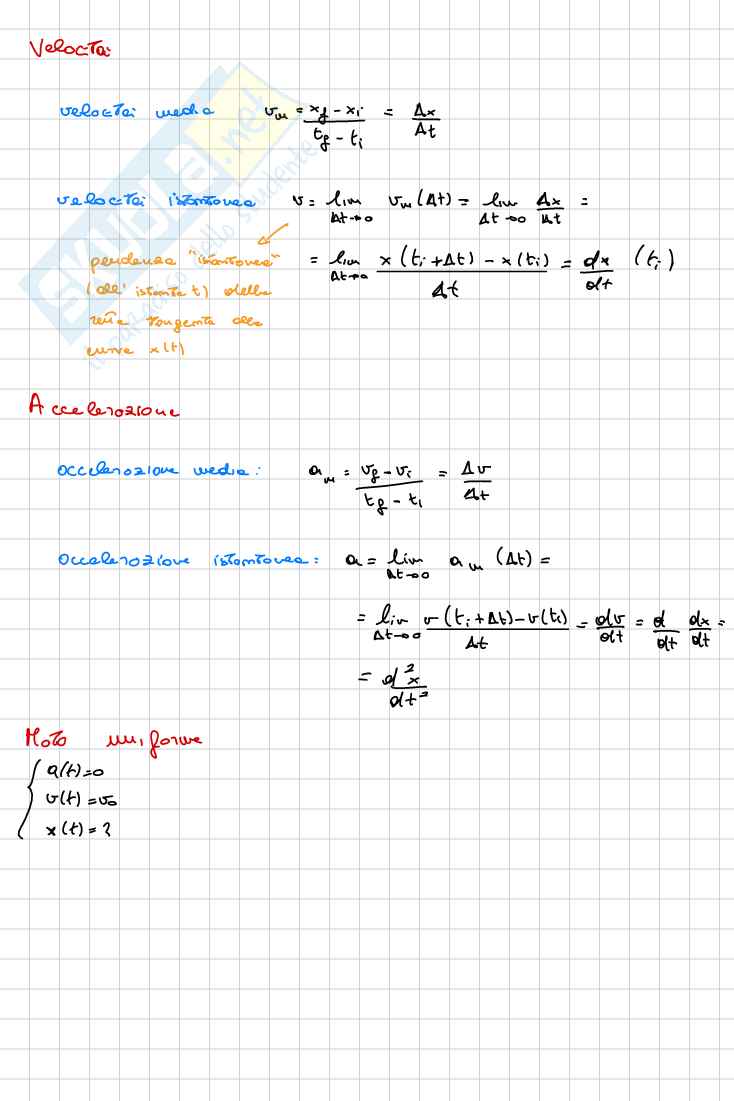 Velocità:
velocità media v_m = (x_f - x_i)/(t_f - t_i) = Δx/Δt
velocità istantanea v = lim_{Δt→0} v_m(Δt) = lim_{Δt→0} Δx/Δt =
= lim_{Δt→0} (x(t_i + Δt) - x(t_i))/Δt = dx/dt (t_i)
pendenza "istantanea"
(all'istante t) della
retta tangente alla
curva x(t)
Accelerazione
accelerazione media: a_m = (v_f - v_i)/(t_f - t_i) = Δv/Δt
accelerazione istantanea: a = lim_{Δt→0} a_m(Δt) =
= lim_{Δt→0} (v(t_i + Δt) - v(t_i))/Δt = dv/dt = d/dt dx/dt =
= d²x/dt²
Moto uniforme
{ a(t) = 0
v(t) = v₀
x(t) = ?
SKUOLA.net
il paradiso dello studente